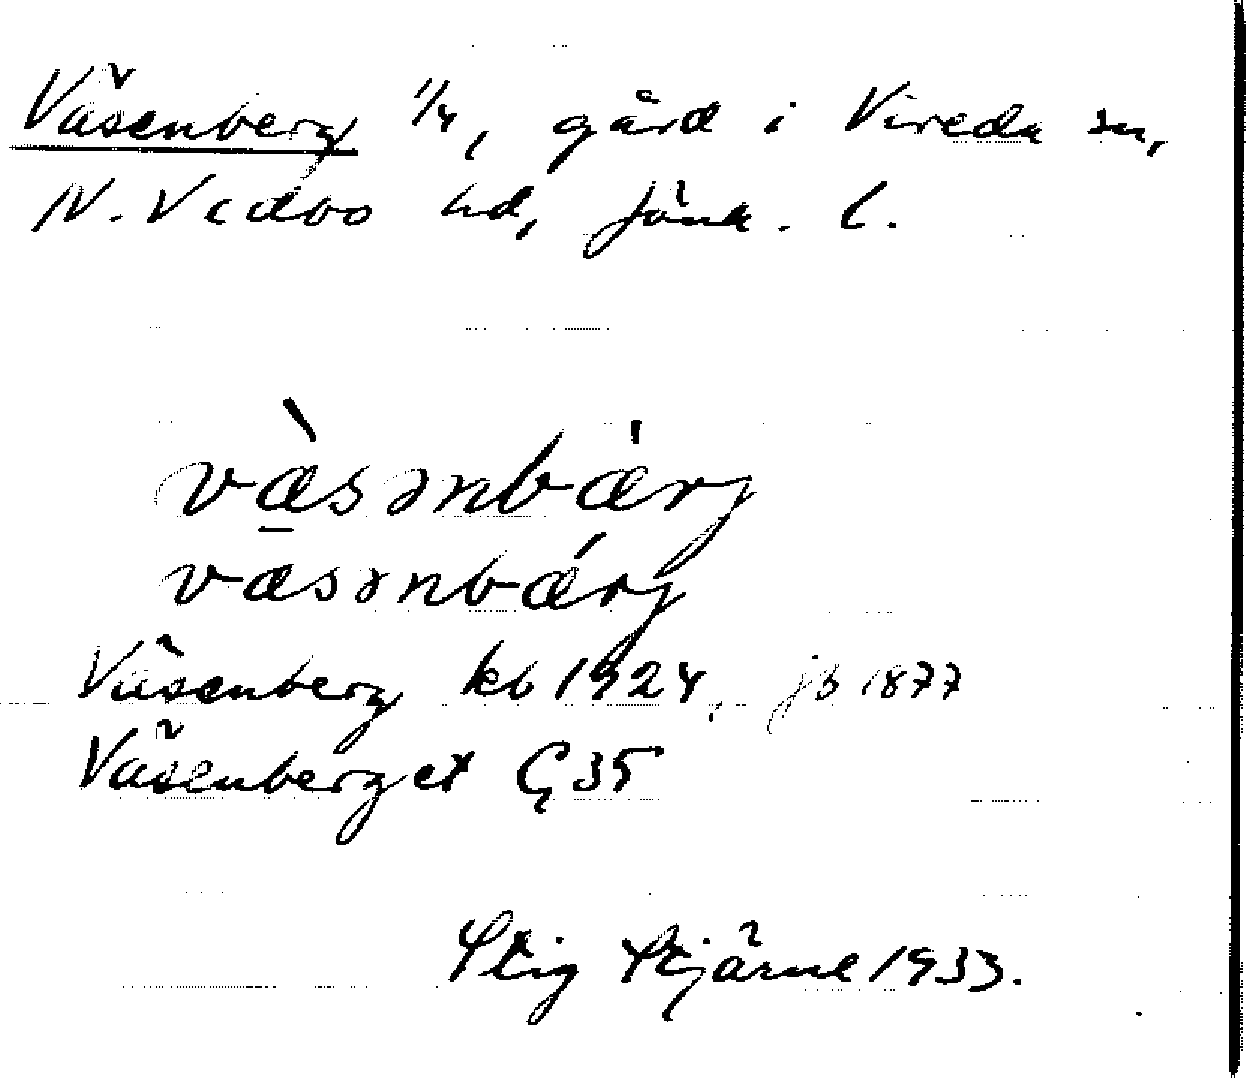 Väsenberg 1/4, gård i Vireda sn,
N. Vedbo hd, Jönk. l.
væ̀sənbæ̍rj
væsənbǽrj
Väsenberg kb 1924, jb 1877
Väsenberget G 35
Stig Stjärne 1933.